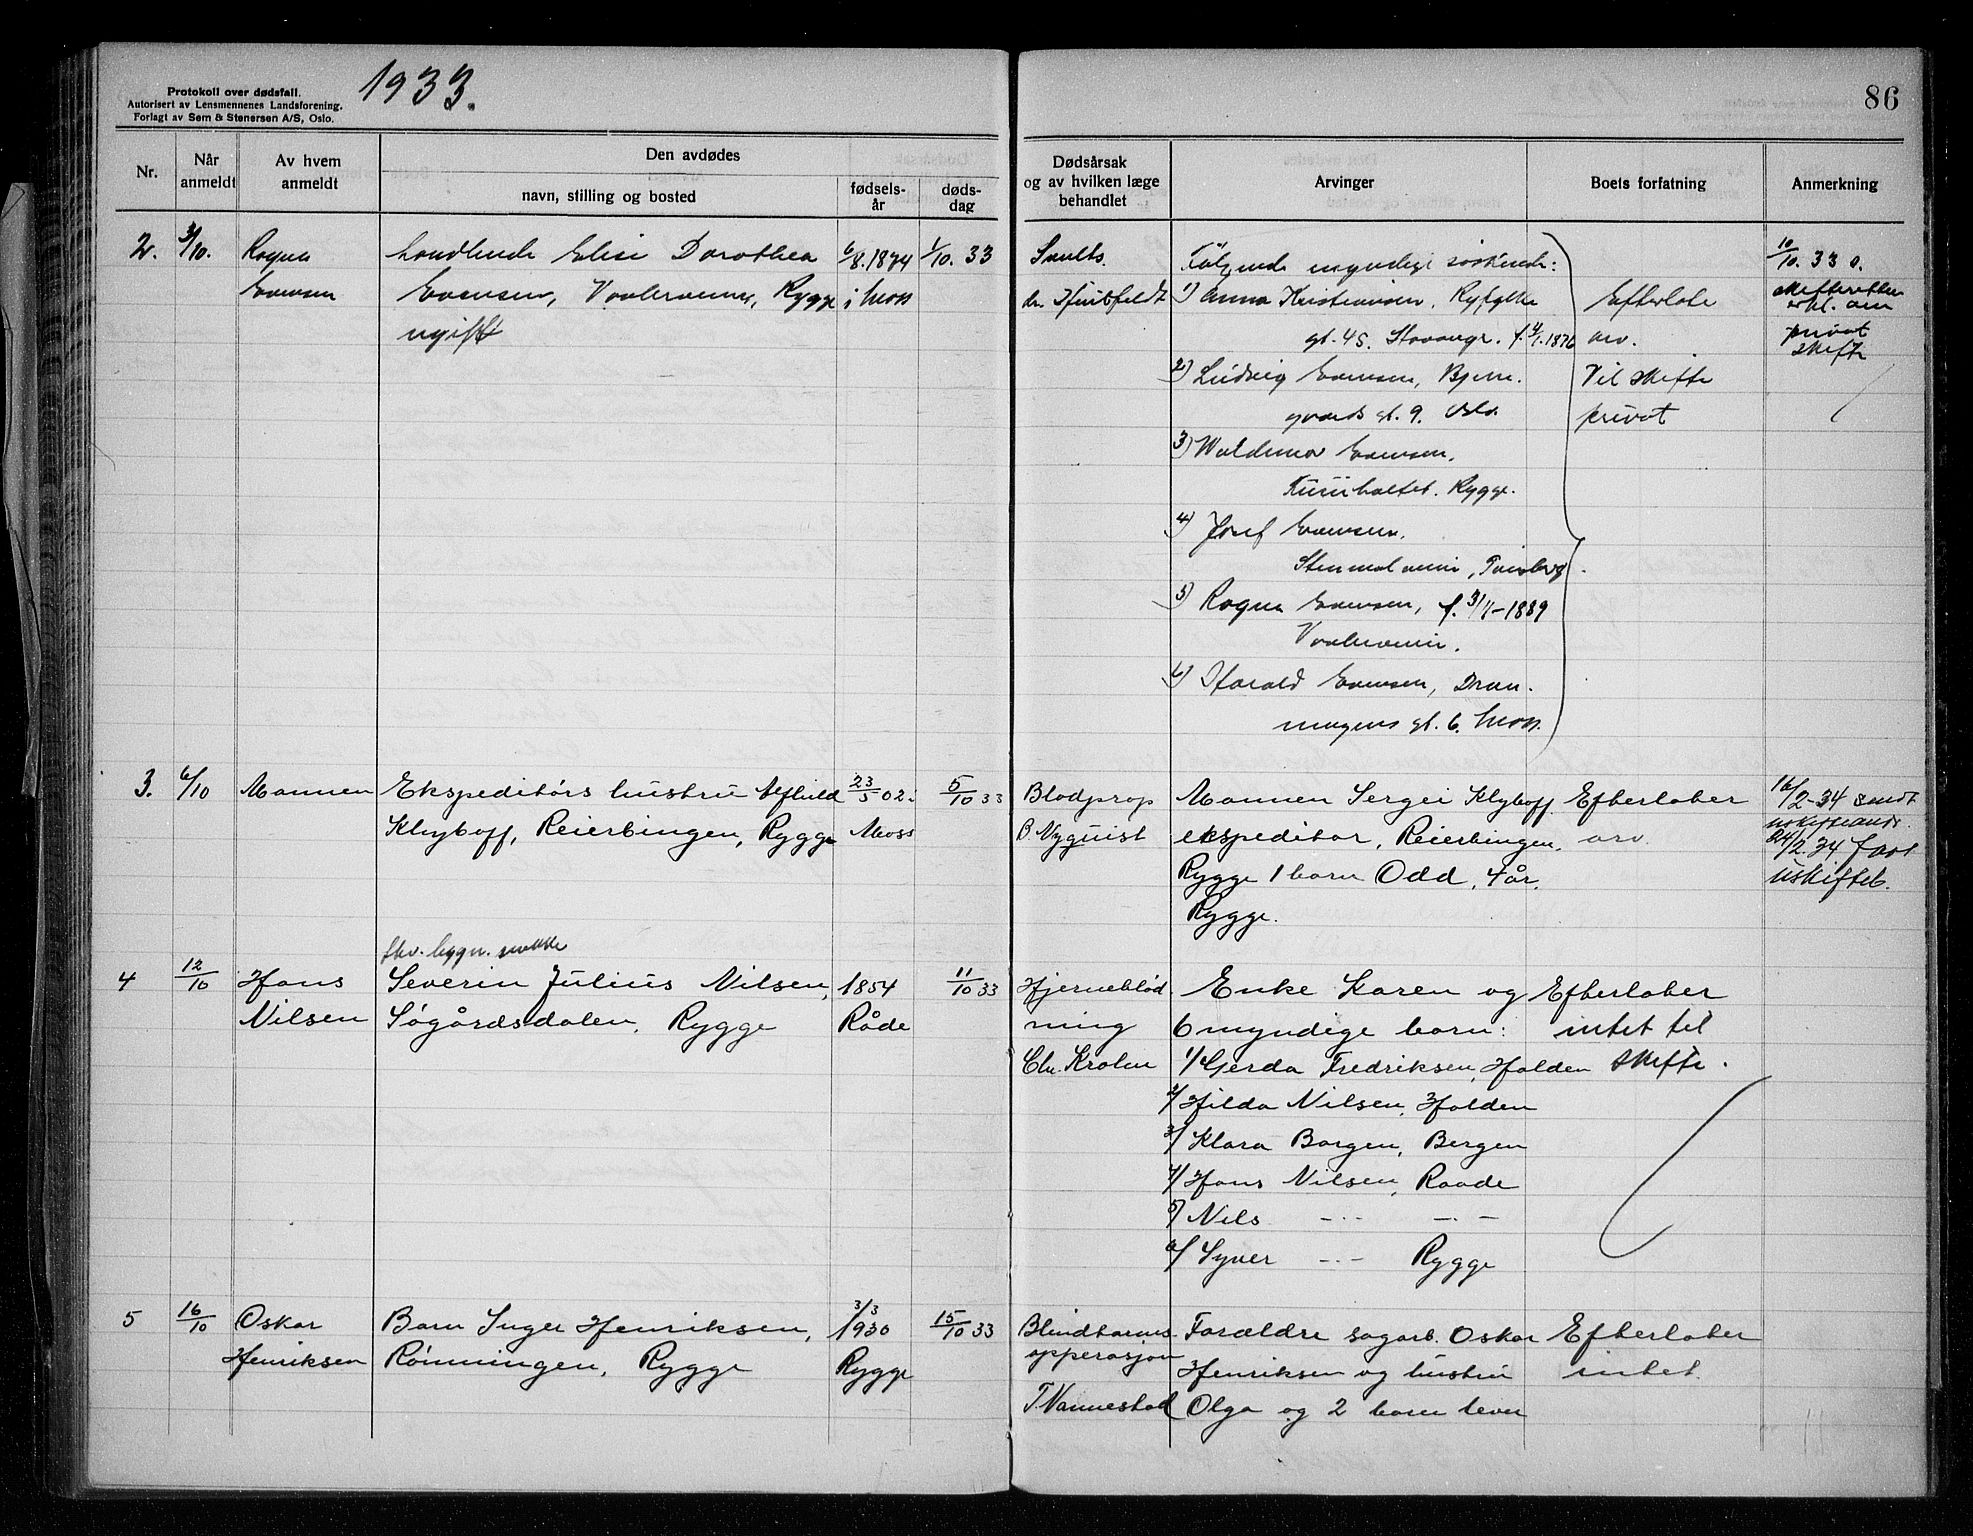 Protokoll over dødsfall.
Autorisert av Lensmennenes Landsforening.
Forlagt av Sem & Stenersen A/S, Oslo.
1933.
86
Nr.
Når anmeldt
Av hvem anmeldt
Den avdødes
navn, stilling og bosted
fødsels-år
døds-dag
Dødsårsak og av hvilken læge behandlet
Arvinger
Boets forfatning
Anmerkning
2. 3/10. Ragna Evensen
Elise Dorothea
Evensen, Vaalerveien, Rygge
ugift
6/8.1874
i Moss
1/10. 33
dr. Huitfeldt
Følgende myndige søskende:
1) Anna Kristiansen, Ryfylke
gt. 45. Stavanger. f. 4/1.1876
2) Ludvig Evensen, Bjerre-
gaards gt. 9. Oslo.
3) Waldemar Evensen,
Rygge.
4) Josef Evensen.
5) Ragna Evensen, f. 3/7-1889
Vaalerveien.
6) Harald Evensen, Dron-
ningens gt. 6. Moss.
Efterlate
arv.
Vil skifte
privat
10/10. 33 s.
skifteretten
erkl. om
privat
skifte
3. 6/10 Mannen
Ekspeditørs hustru Alfhild
Klyboff, Reierbingen, Rygge
23/5 02 i
Moss
5/10 33
Blodprop
B. Nyquist
Mannen Sergei Klyboff
ekspeditør, Reierbingen,
Rygge 1 barn Odd, 4 år,
Rygge.
Efterlater
arv.
16/2-34 sendt
uskifteandr.
24/2.34 fått
uskiftet.
4 12/10 Hans
Nilsen
fhv. bygn. snekker
Severin Julius Nilsen,
Søgårdsdalen, Rygge
1854
Råde
11/10 33
Hjerneblød-
ning
Chr. Krohn
Enke Karen og
6 myndige barn:
1/ Gerda Fredriksen, Halden
2/ Hilda Nilsen, Halden
3/ Klara Borgen, Bergen
4/ Hans Nilsen, Raade
5/ Nils -"- -"-
6/ Syver -"- Rygge
Efterlater
intet til
skifte.
5 16/10 Oskar
Henriksen
Barn Inger Henriksen,
Rømmingen, Rygge
3/3
1930
Rygge
15/10 33
Blindtarms-
opperasjon
T. Vannestad
Forældre sagarb. Oskar
Henriksen og hustru
Olga og 2 barn lever
Efterlater
intet.